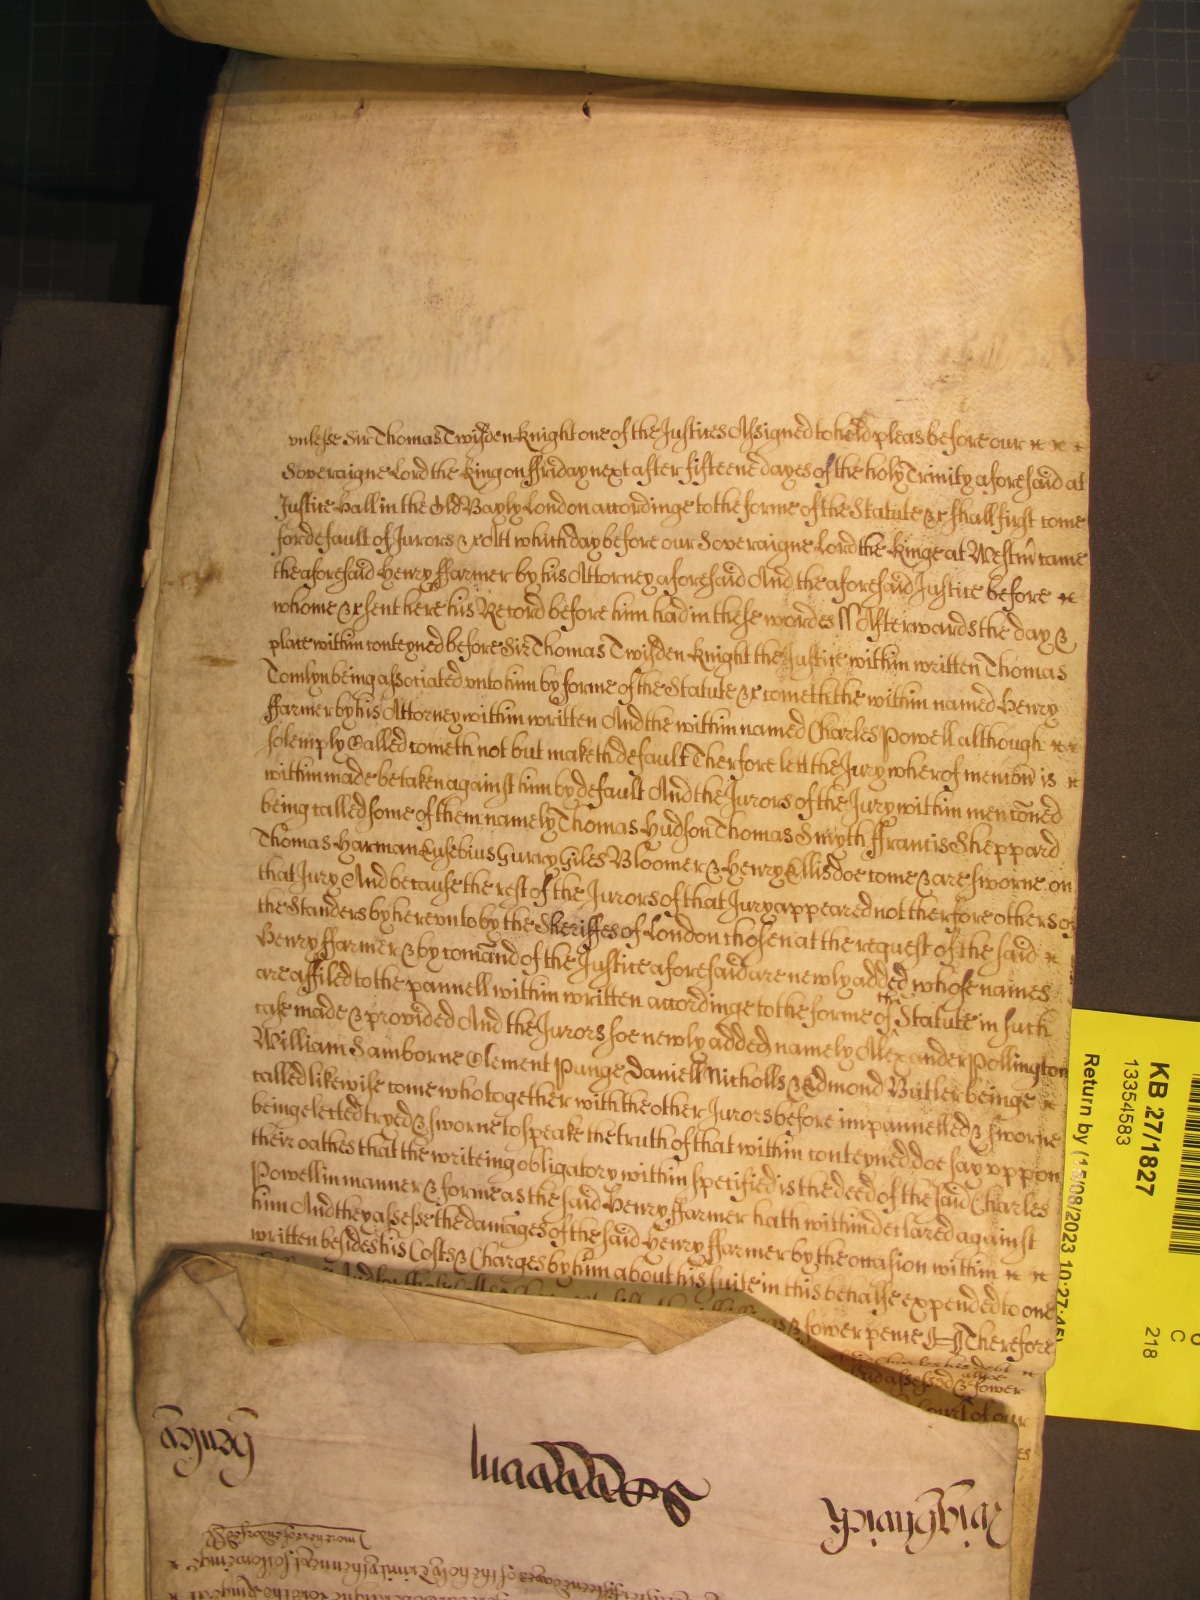 vnlesse Sir Thomas Twisden Knight one of the Justices Assigned to hold pleas before our
Soveraigne Lord the King on ffriday next after fifteene dayes of the holy Trinity aforesaid at
Justice Hall in the Old Bayly London accordinge to the forme of the Statute &c shall first come
for default of Jurors &c Att which day before our Soveraigne Lord the Kinge at Westm came
the aforesaid Henry ffarmer by his Attorney aforesaid And the aforesaid Justice before
whome &c sent here his Record before him had in these wordes ss Afterwards the day &
place within conteyned before Sir Thomas Twisden Knight the Justice within written Thomas
Tomlyn being associated vnto him by forme of the Statute &c cometh the within named Henry
ffarmer by his Attorney within written And the within named Charles Powell although
solemply Called cometh not but maketh default Therfore lett the Jury wherof mencon is
within made be taken against him by default And the Jurors of the Jury within menconed
being called some of them namely Thomas Hudson Thomas Smyth ffrancis Sheppard
Thomas Harman Eusebius Gurry Giles Bloomer & Henry Ellis doe come & are sworne on
that Jury And because the rest of the Jurors of that Jury appeared not therfore others of
the Standers by herevnto by the Sheriffes of London chosen at the request of the said
Henry ffarmer & by comand of the Justice aforesaid are newly added whose names
are affiled to the pannell within written accordinge to the forme of the Statute in such
case made & provided And the Jurors soe newly added namely Alexander Pollington
William Samborne Clement Punge Daniell Nicholls & Edmond Butler beinge
called likewise come who together with the other Jurors before impannelled & sworne
being elected tryed & sworne to speake the truth of that within conteyned doe say vppon
their oathes that the writeing obligatory within specified is the deed of the said Charles
Powell in manner & forme as the said Henry ffarmer hath within declared against
him And they assesse the damages of the said Henry ffarmer by the occasion within
written besides his Costs & Charges by him about his suite in this behalfe expended to one
& fower pence Therefore
his debt
assessed & fower
Court of our
KB 27/1827
13354583
Return by (15/08/2023 10:27:45)
C
218